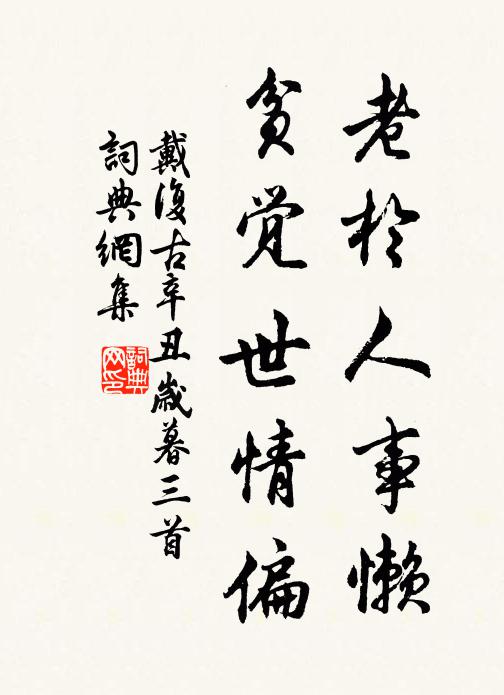 老於人事懶
貧覚世情偏
戴復古辛丑歳暮三首
詞典網集
詞典
网印